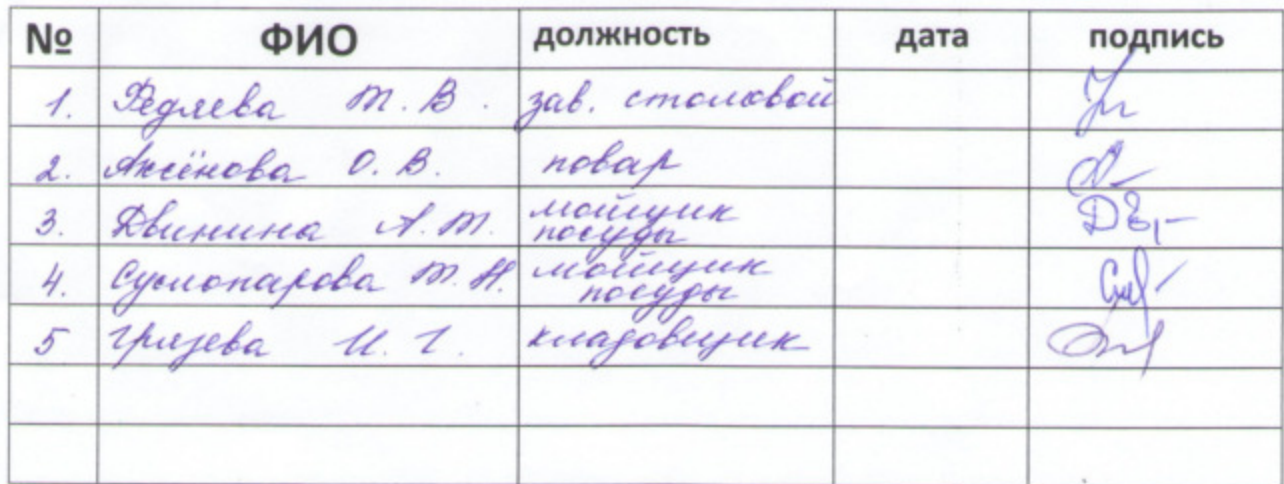 № ФИО должность дата подпись
1. Федяева Т. В. зав. столовой
2. Аксёнова О. В. повар
3. Двинина А. Т. мойщик
посуды
4. Суслопарова Т. Н. мойщик
посуды
5 Грязева И. Г. кладовщик